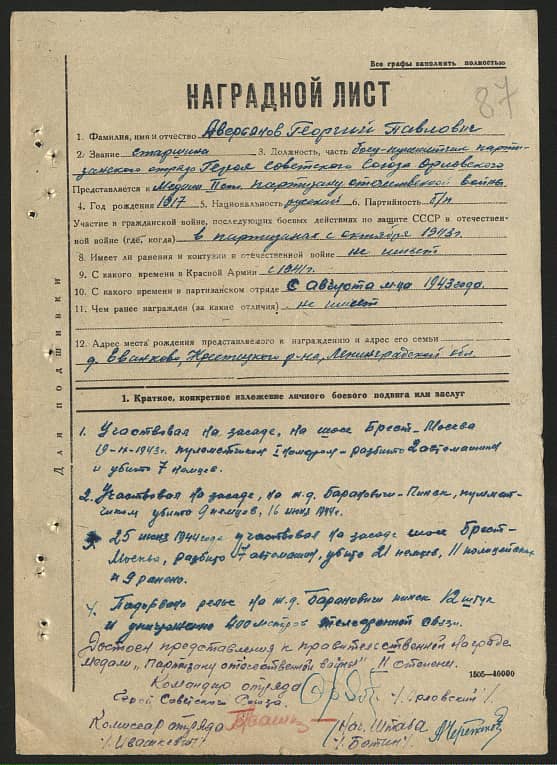 Все графы заполнять полностью
87
НАГРАДНОЙ ЛИСТ
1. Фамилия, имя и отчество Аверьянов Георгий Павлович
2. Звание старшина 3. Должность, часть боец-пулеметчик парти-
занского отряда Героя Советского Союза Орловского
Представляется к Медали Пст. партизану отечественной войны
4. Год рождения 1917 5. Национальность русский 6. Партийность б/п
Участие в гражданской войне, последующих боевых действиях по защите СССР в отечествен-
ной войне (где, когда) в партизанах с октября 1943г.
8. Имеет ли ранения и контузии в отечественной войне не имеет
9. С какого времени в Красной Армии с 1941г.
10. С какого времени в партизанском отряде С августа м-ца 1943 года
11. Чем ранее награжден (за какие отличия) не имеет
12. Адрес места рождения представляемого к награждению и адрес его семьи
Крестецкого р-на, Ленинградской обл.
Для подшивки
1. Краткое, конкретное изложение личного боевого подвига или заслуг
1. Участвовал на засаде, на шосе Брест-Москва
1943г. пулеметчиком разбито 2 автомашины
и убито 7 немцев.
2. Участвовал на засаде, на ж.д. Барановичи-Пинск, пулемет-
чиком убито 9 немцев, 16 июня 1944г.
25 июня 1944 года участвовал на засаде шосе Брест-
Москва, разбито 17 автомашин, убито 21 немцев, 11 полицейских
и 9 ранено.
4. Подорвано рельс на ж.д. Барановичи пинск 12 штук
и уничтожено 400 метров телефонной связи.
Достоен представления к правительственной награде
медали „Партизану отечественной войны" II степени.
1505—40000
Командир отряда
Герой Советского Союза. /Орловский/
Комиссар отряда Нач. Штаба
/Ивашкевич/